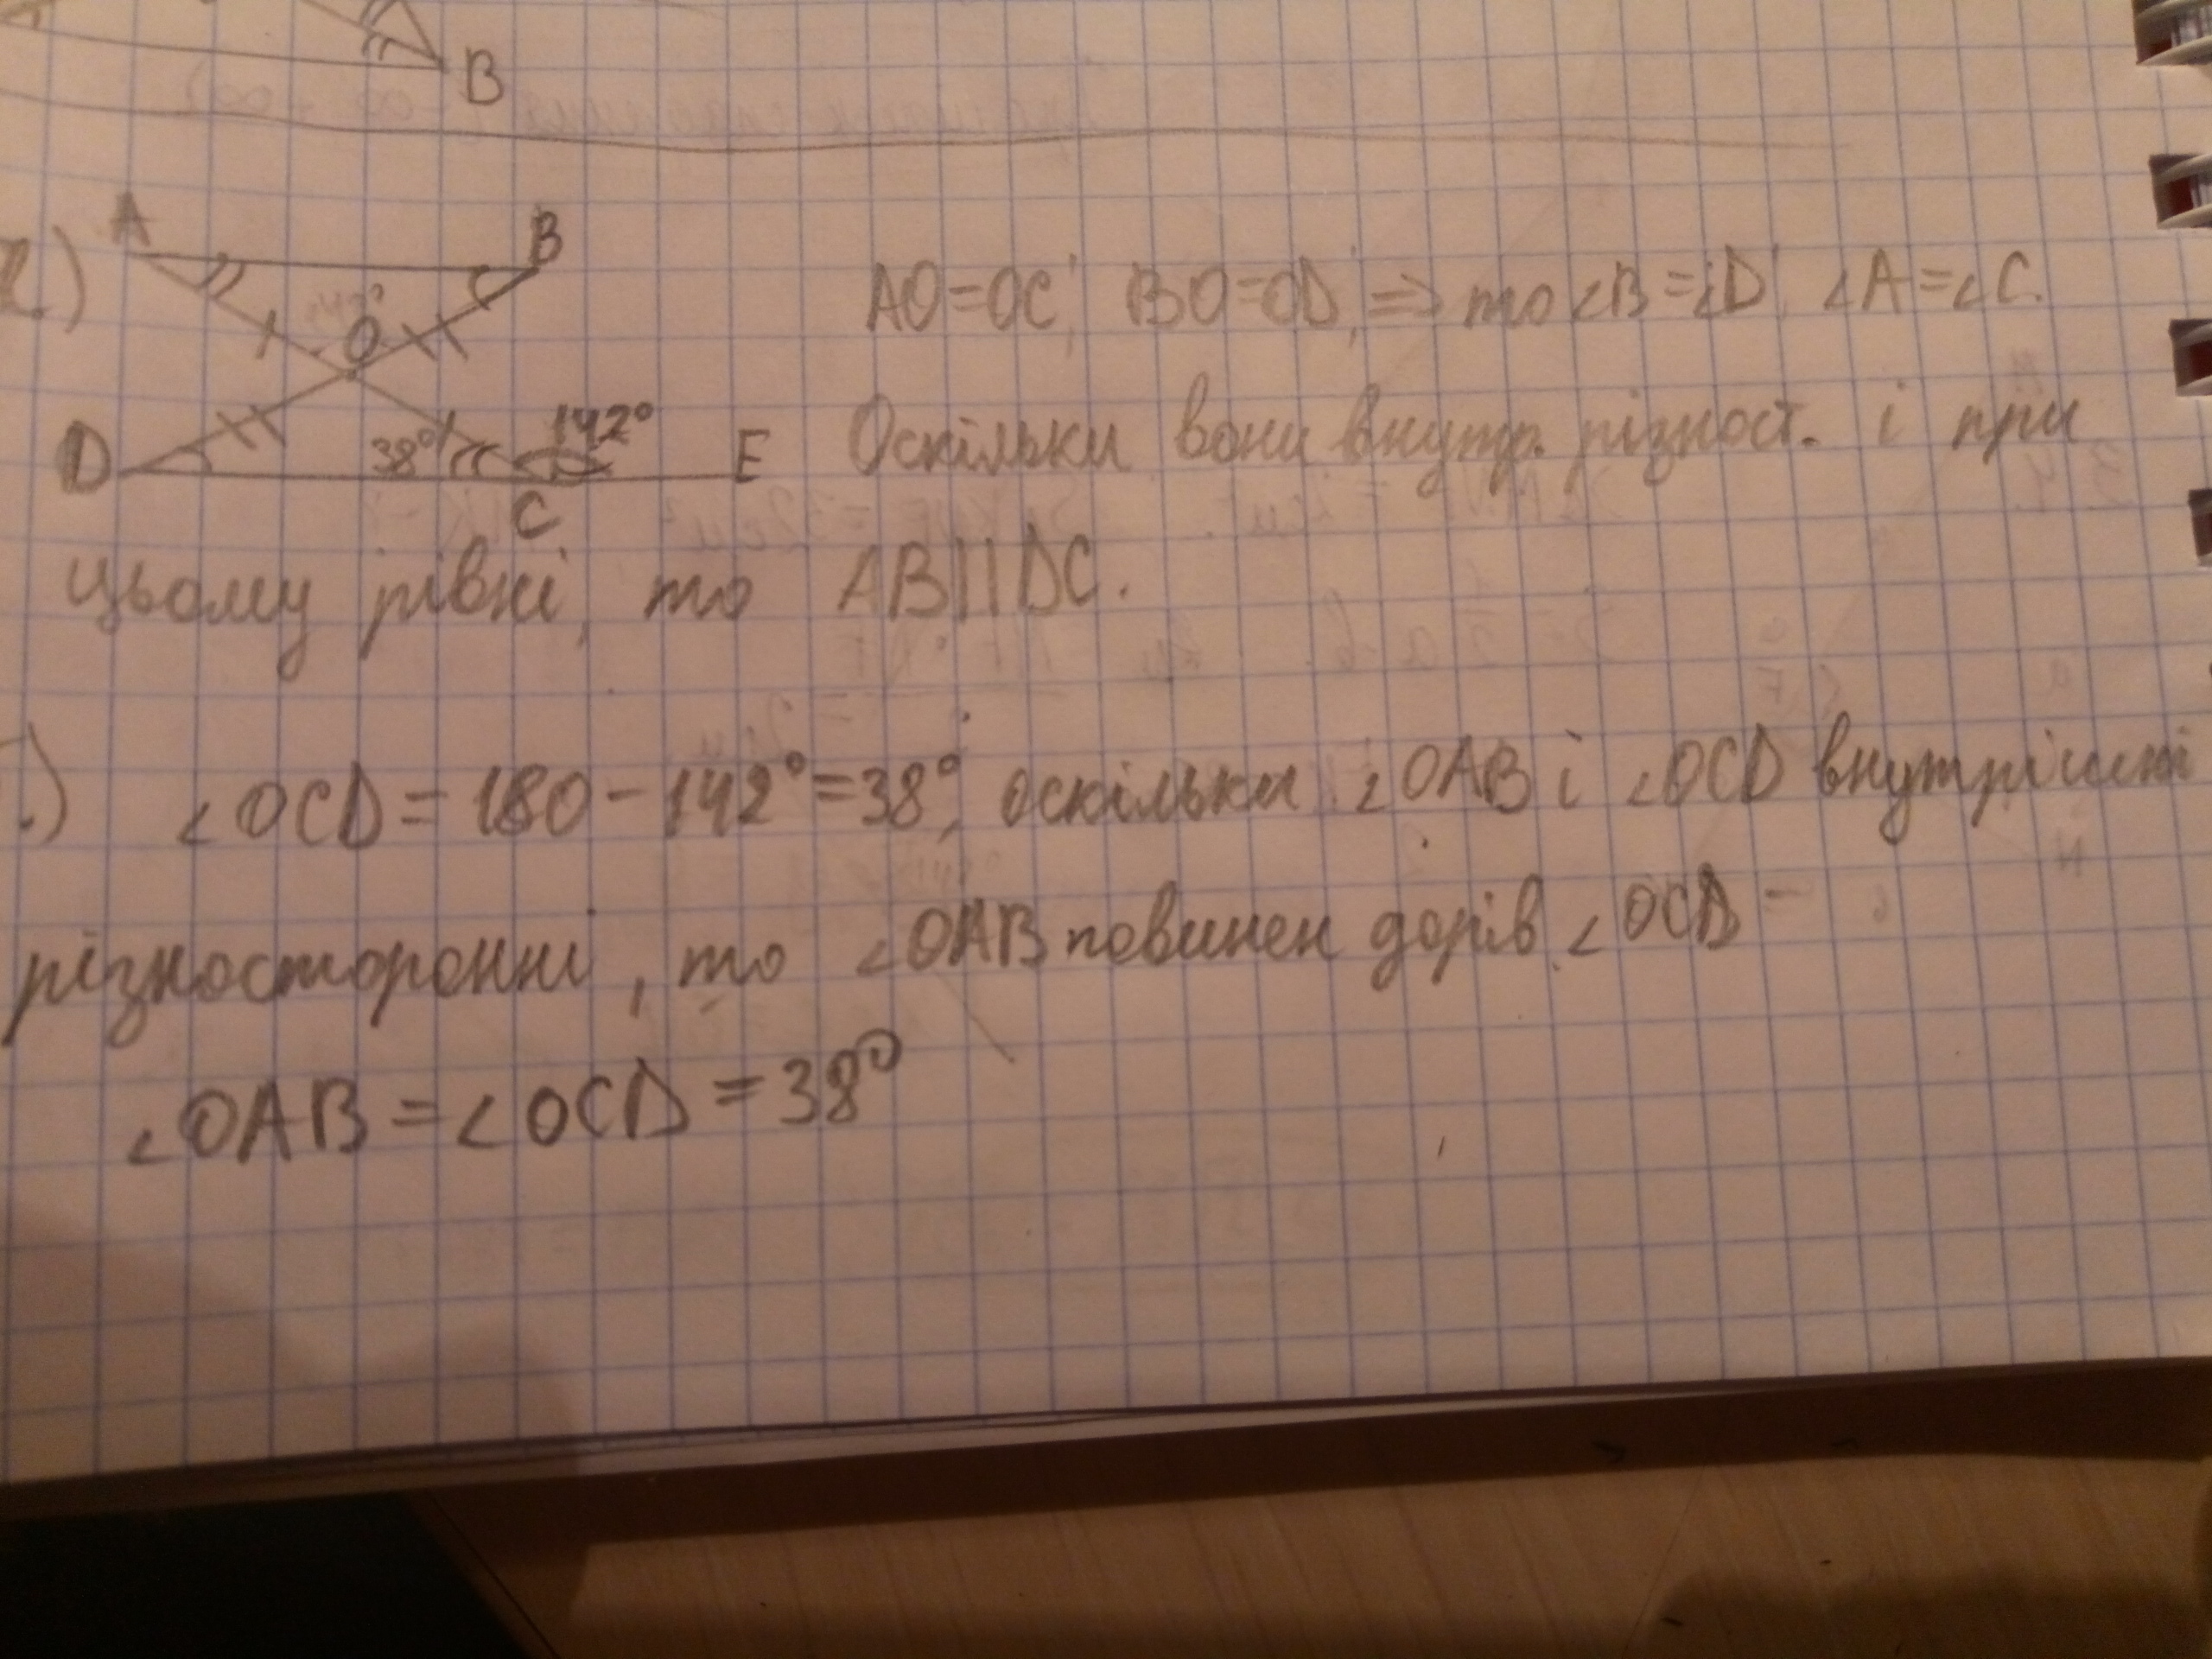 B
A B
AO=OC; BO=OD, => то ∠B=∠D, ∠A=∠C.
O
142°
D 38° E
Оскільки вони внутр. різност. і при
C
цьому рівні, то AB||DC.
∠OCD=180-142°=38°, оскільки ∠OAB і ∠OCD внутрішні
різносторонні, то ∠OAB повинен дорів. ∠OCD -
∠OAB=∠OCD=38°